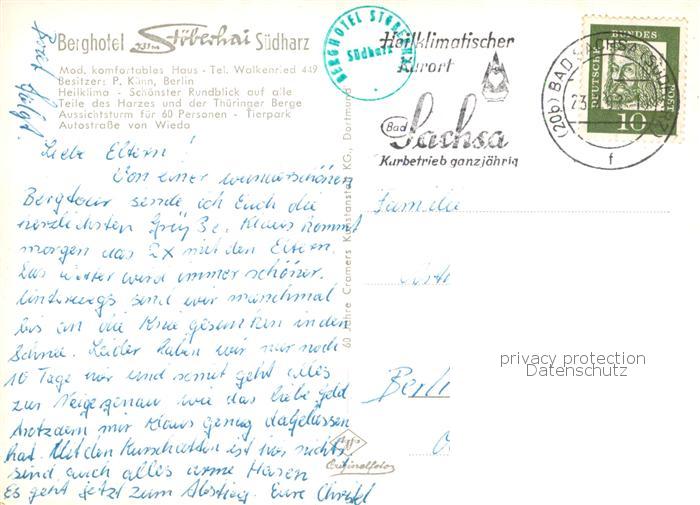 Berghotel 731m Stöberhai Südharz
Mod. komfortables Haus - Tel. Walkenried 449
Besitzer: P. Künn, Berlin
Heilklima - Schönster Rundblick auf alle
Teile des Harzes und der Thüringer Berge
Aussichtsturm für 60 Personen - Tierpark
Autostraße von Wieda
Liebe Eltern!
Von einer wunderschönen
Bergtour sende ich Euch die
herzlichsten Grüße. Klaus kommt
morgen das 2x mit den Eltern.
Das Wetter wird immer schöner.
Unterwegs sind wir manchmal
bis an die Knie gesunken in den
Schnee. Leider haben wir nur noch
10 Tage hier und somit geht alles
zur Neige genau wie das liebe Geld
trotzdem mir Klaus genug dagelassen
hat. Mit den Kurschatten ist hier nichts
sind auch alles arme Hasen
Es geht jetzt zum Abstieg. Eure Christel
60 Jahre Cramers Kunstanstalt KG., Dortmund
Agfa
Originalfoto
BERGHOTEL STÖBERHAI
Südharz
Heilklimatischer
Kurort
Bad Sachsa
Kurbetrieb ganzjährig
(20b) BAD SACHSA (SÜDHARZ)
23.
f
DEUTSCHE BUNDESPOST
10
Familie
Berli
privacy protection
Datenschutz